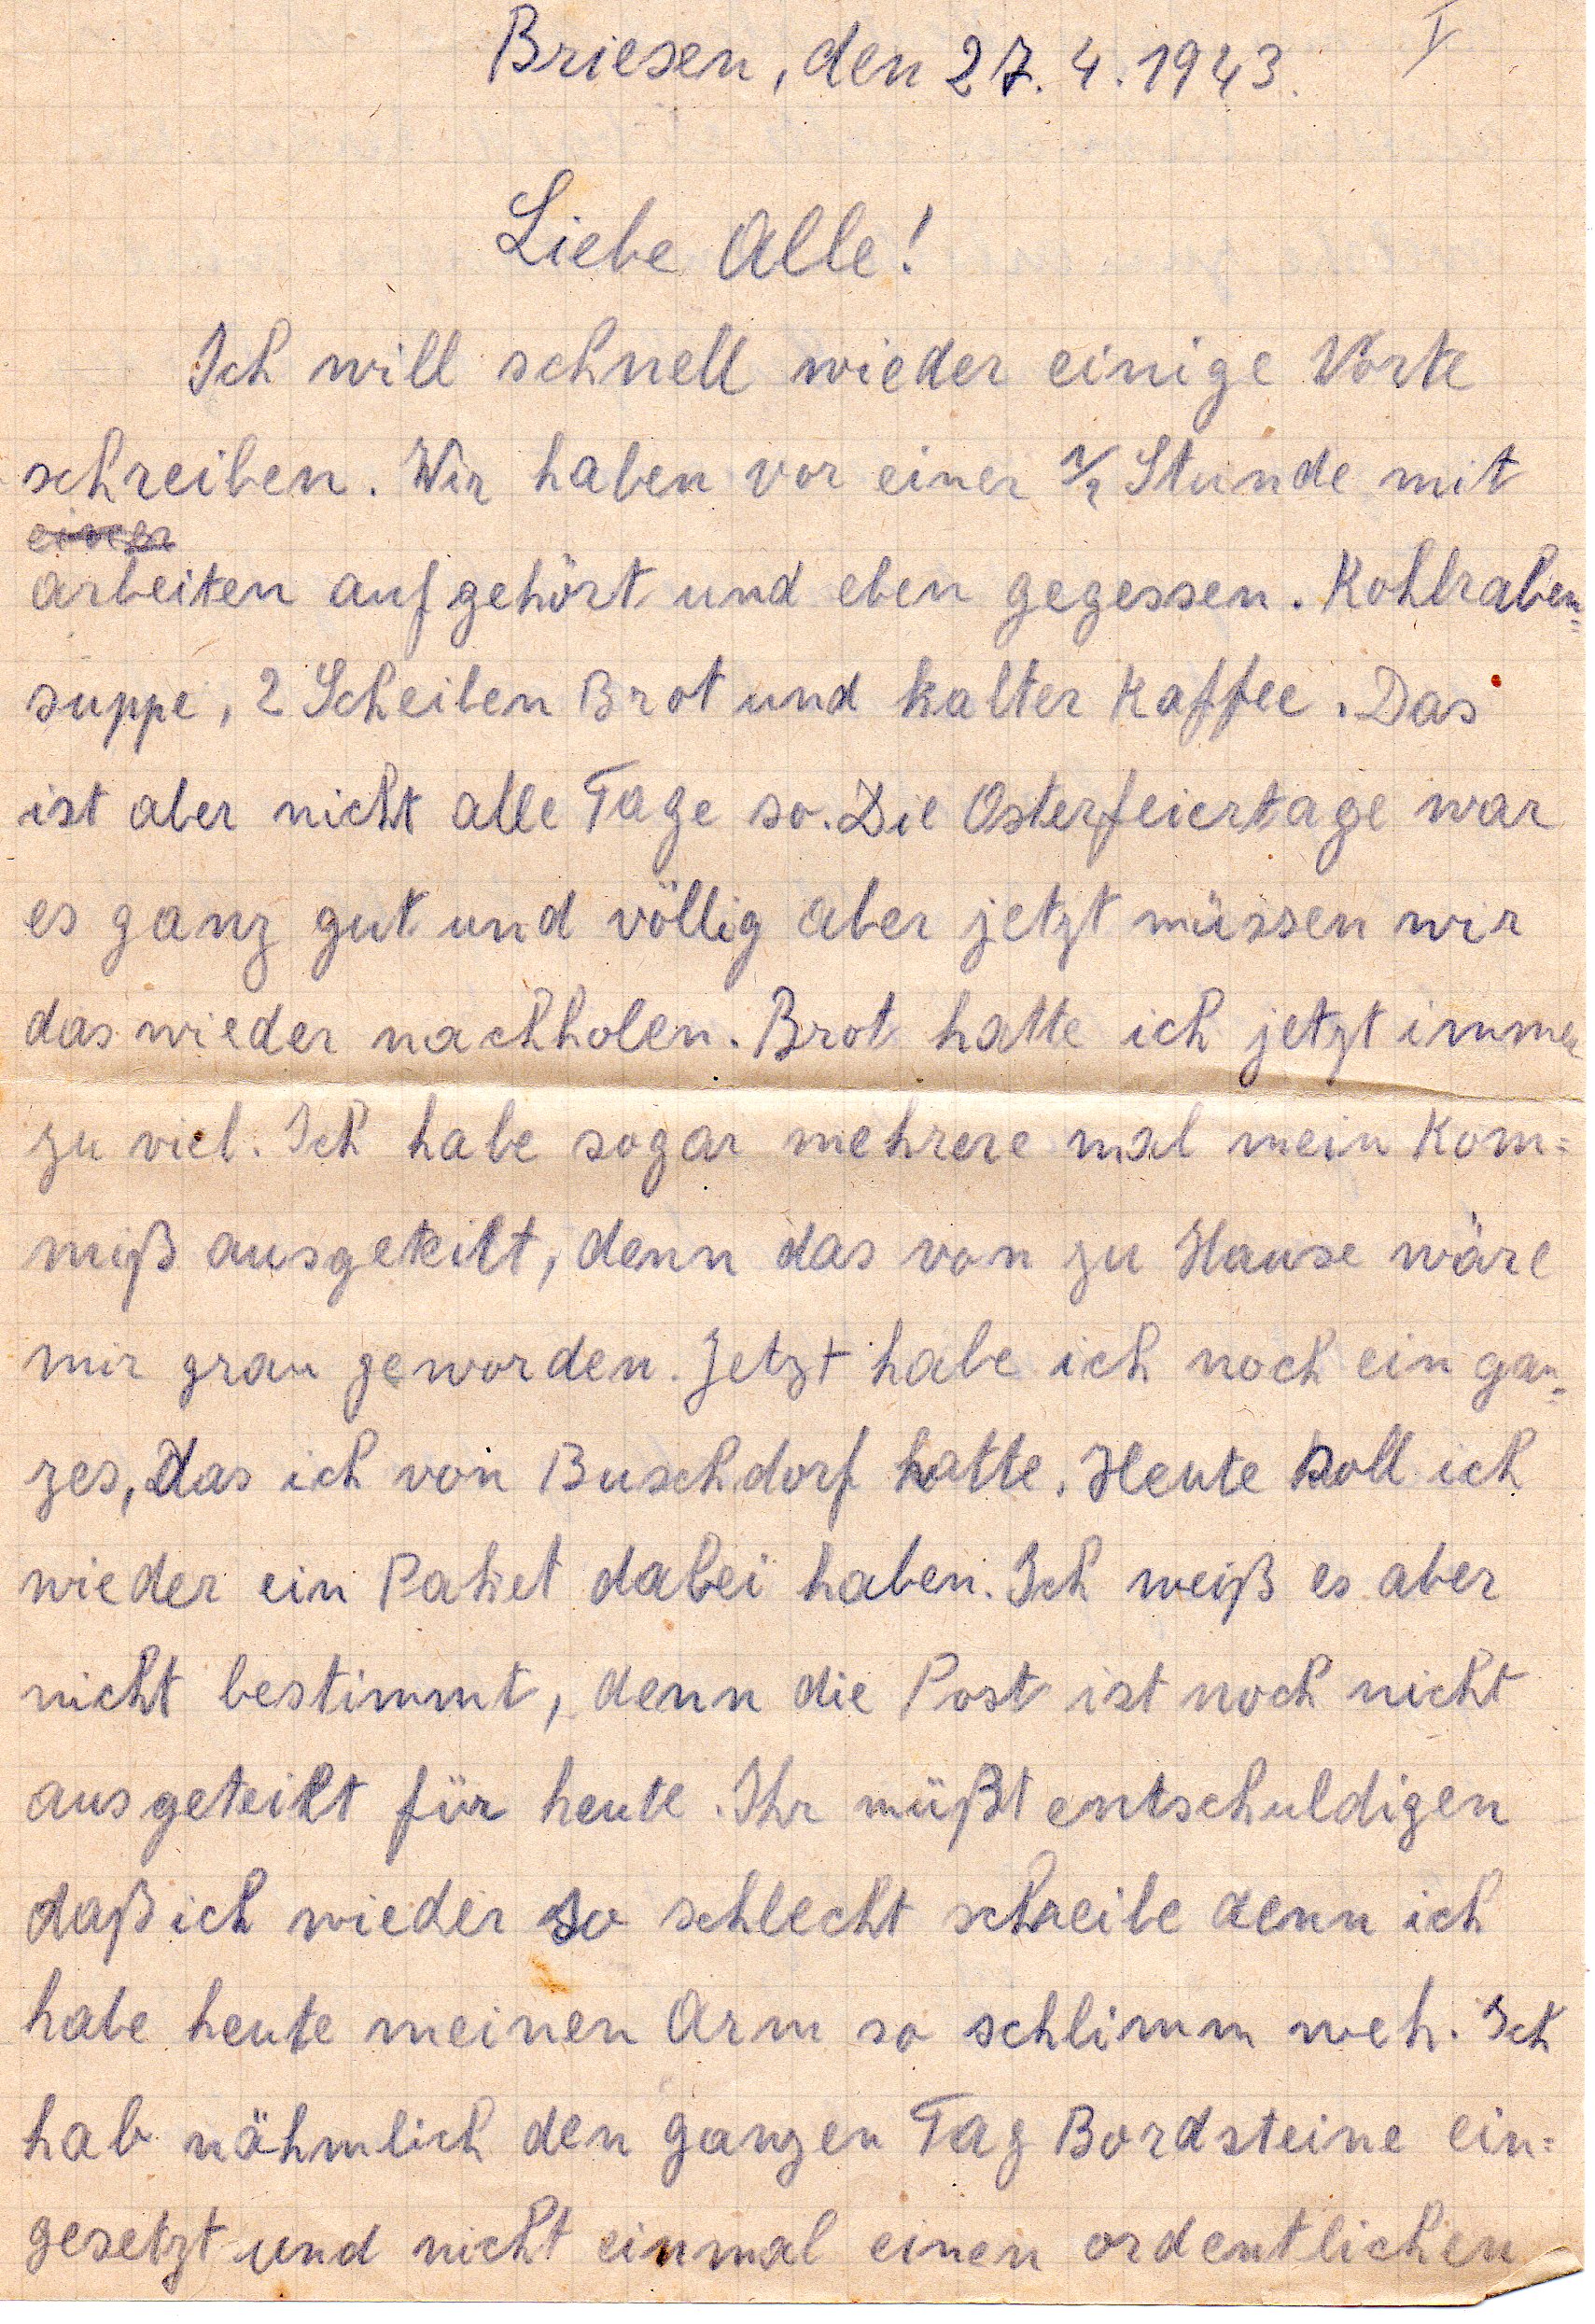 Briesen, den 27. 4. 1943. I
Liebe Alle!
Ich will schnell wieder einige Worte
schreiben. Wir haben vor einer 1/2 Stunde mit
arbeiten aufgehört und eben gegessen. Kohlraben=
suppe, 2 Scheiben Brot und kalter Kaffee. Das
ist aber nicht alle Tage so. Die Osterfeiertage war
es ganz gut und völlig aber jetzt müssen wir
das wieder nachholen. Brot hatte ich jetzt immer
zu viel. Ich habe sogar mehrere mal mein Kom=
miß ausgeteilt, denn das von zu Hause wäre
mir grau geworden. Jetzt habe ich noch ein gan=
zes, das ich von Buschdorf hatte. Heute soll ich
wieder ein Paket dabei haben. Ich weiß es aber
nicht bestimmt, denn die Post ist noch nicht
ausgeteilt für heute. Ihr müßt entschuldigen
daß ich wieder so schlecht schreibe denn ich
habe heute meinen Arm so schlimm weh. Ich
hab nähmlich den ganzen Tag Bordsteine ein=
gesetzt und nicht einmal einen ordentlichen